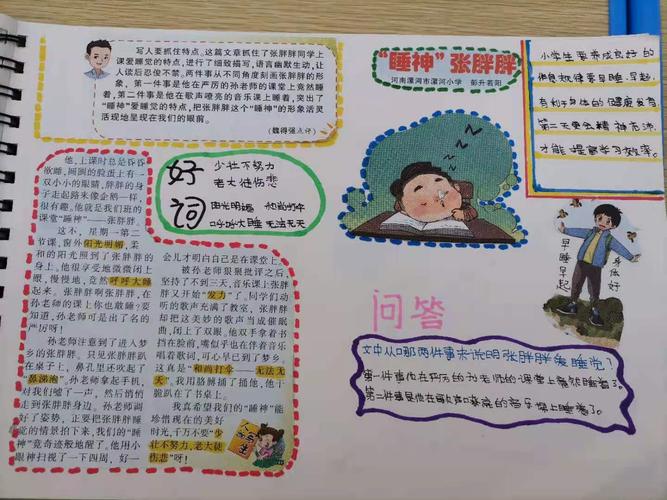 写人要抓住特点。这篇文章抓住了张胖胖同学上
课爱睡觉的特点，进行了细致描写，语言幽默生动，让
人读后忍俊不禁。两件事从不同角度刻画张胖胖的形
象，第一件事是他在严厉的孙老师的课堂上竟然睡
着，第二件事是他在歌声嘹亮的音乐课上睡着，突出了
“睡神”爱睡觉的特点，把张胖胖这个“睡神”的形象活灵
活现地呈现在我们的眼前。
（魏得强点评）
“睡神”张胖胖
河南漯河市漯河小学 彭升若阳
小学生要养成良好的
做起，健康早睡、早起，
有利于身体的健康发育
第二天更会精神充沛
才能提高学习效率。
好词
少壮不努力
老大徒伤悲
阳光明媚 和尚打伞
呼呼大睡 无法无天
他，上课时总是昏昏
欲睡，圆圆的脸蛋上有一
双小小的眼睛，胖胖的身
子走起路来像企鹅一样，
很有趣，他就是我们班的
课堂“睡神”——张胖胖。
这不，星期一第二
节课，窗外阳光明媚，柔
和的阳光照到了张胖胖的
身上。他很享受地微微闭上
眼，慢慢地，竟然呼呼大睡
起来。张胖胖啊张胖胖，在
孙老师的课上你也敢睡？要
知道，孙老师可是出了名的
严厉呀！
孙老师徐徐注意到了进入梦
乡的张胖胖。只见张胖胖趴
在桌子上，鼻孔里还吹起了
“鼻涕泡”。孙老师拿起手机，
对我们嘘了一声，然后悄悄
走到张胖胖身边。孙老师调
好了姿势，正要把张胖胖睡
觉的情景拍下来，我们的“睡
神”竟奇迹般地醒了。他用小
眼神扫视了一下四周，好一
会儿才明白自己是在课堂上。
被孙老师狠狠批评之后，
坚持了不到三天，音乐课上张胖
胖又开始“发力”了。同学们动
听的歌声充满了教室，张胖胖
却把这美妙的歌声当成催眠
曲，闭上了双眼，他双手拿着书
挡在脸前，嘴似乎也在伴着音乐
唱着歌词，可心早已到了梦乡。
这真是“和尚打伞——无法无
天”。我用胳膊捅了捅他，他干
脆趴在了书桌上。
我真希望我们的“睡神”能
珍惜现在的美好
时光，千万不要“少
壮不努力，老大徒
伤悲”呀！
早睡早起
身体好
问答
文中从哪两件事来说明张胖胖爱睡觉？
第一件事他在严厉的孙老师的课堂上竟然睡着了。
第二件事是他在歌声嘹亮的音乐课上睡着了。